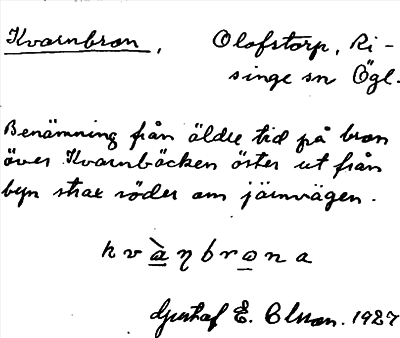 Kvarnbron, Olofstorp, Ri-
singe sn Ögl.
Benämning från äldre tid på bron
över Kvarnbäcken öster ut från
byn strax söder om järnvägen.
kvàŋbrona
Gustaf E. Olsson. 1927